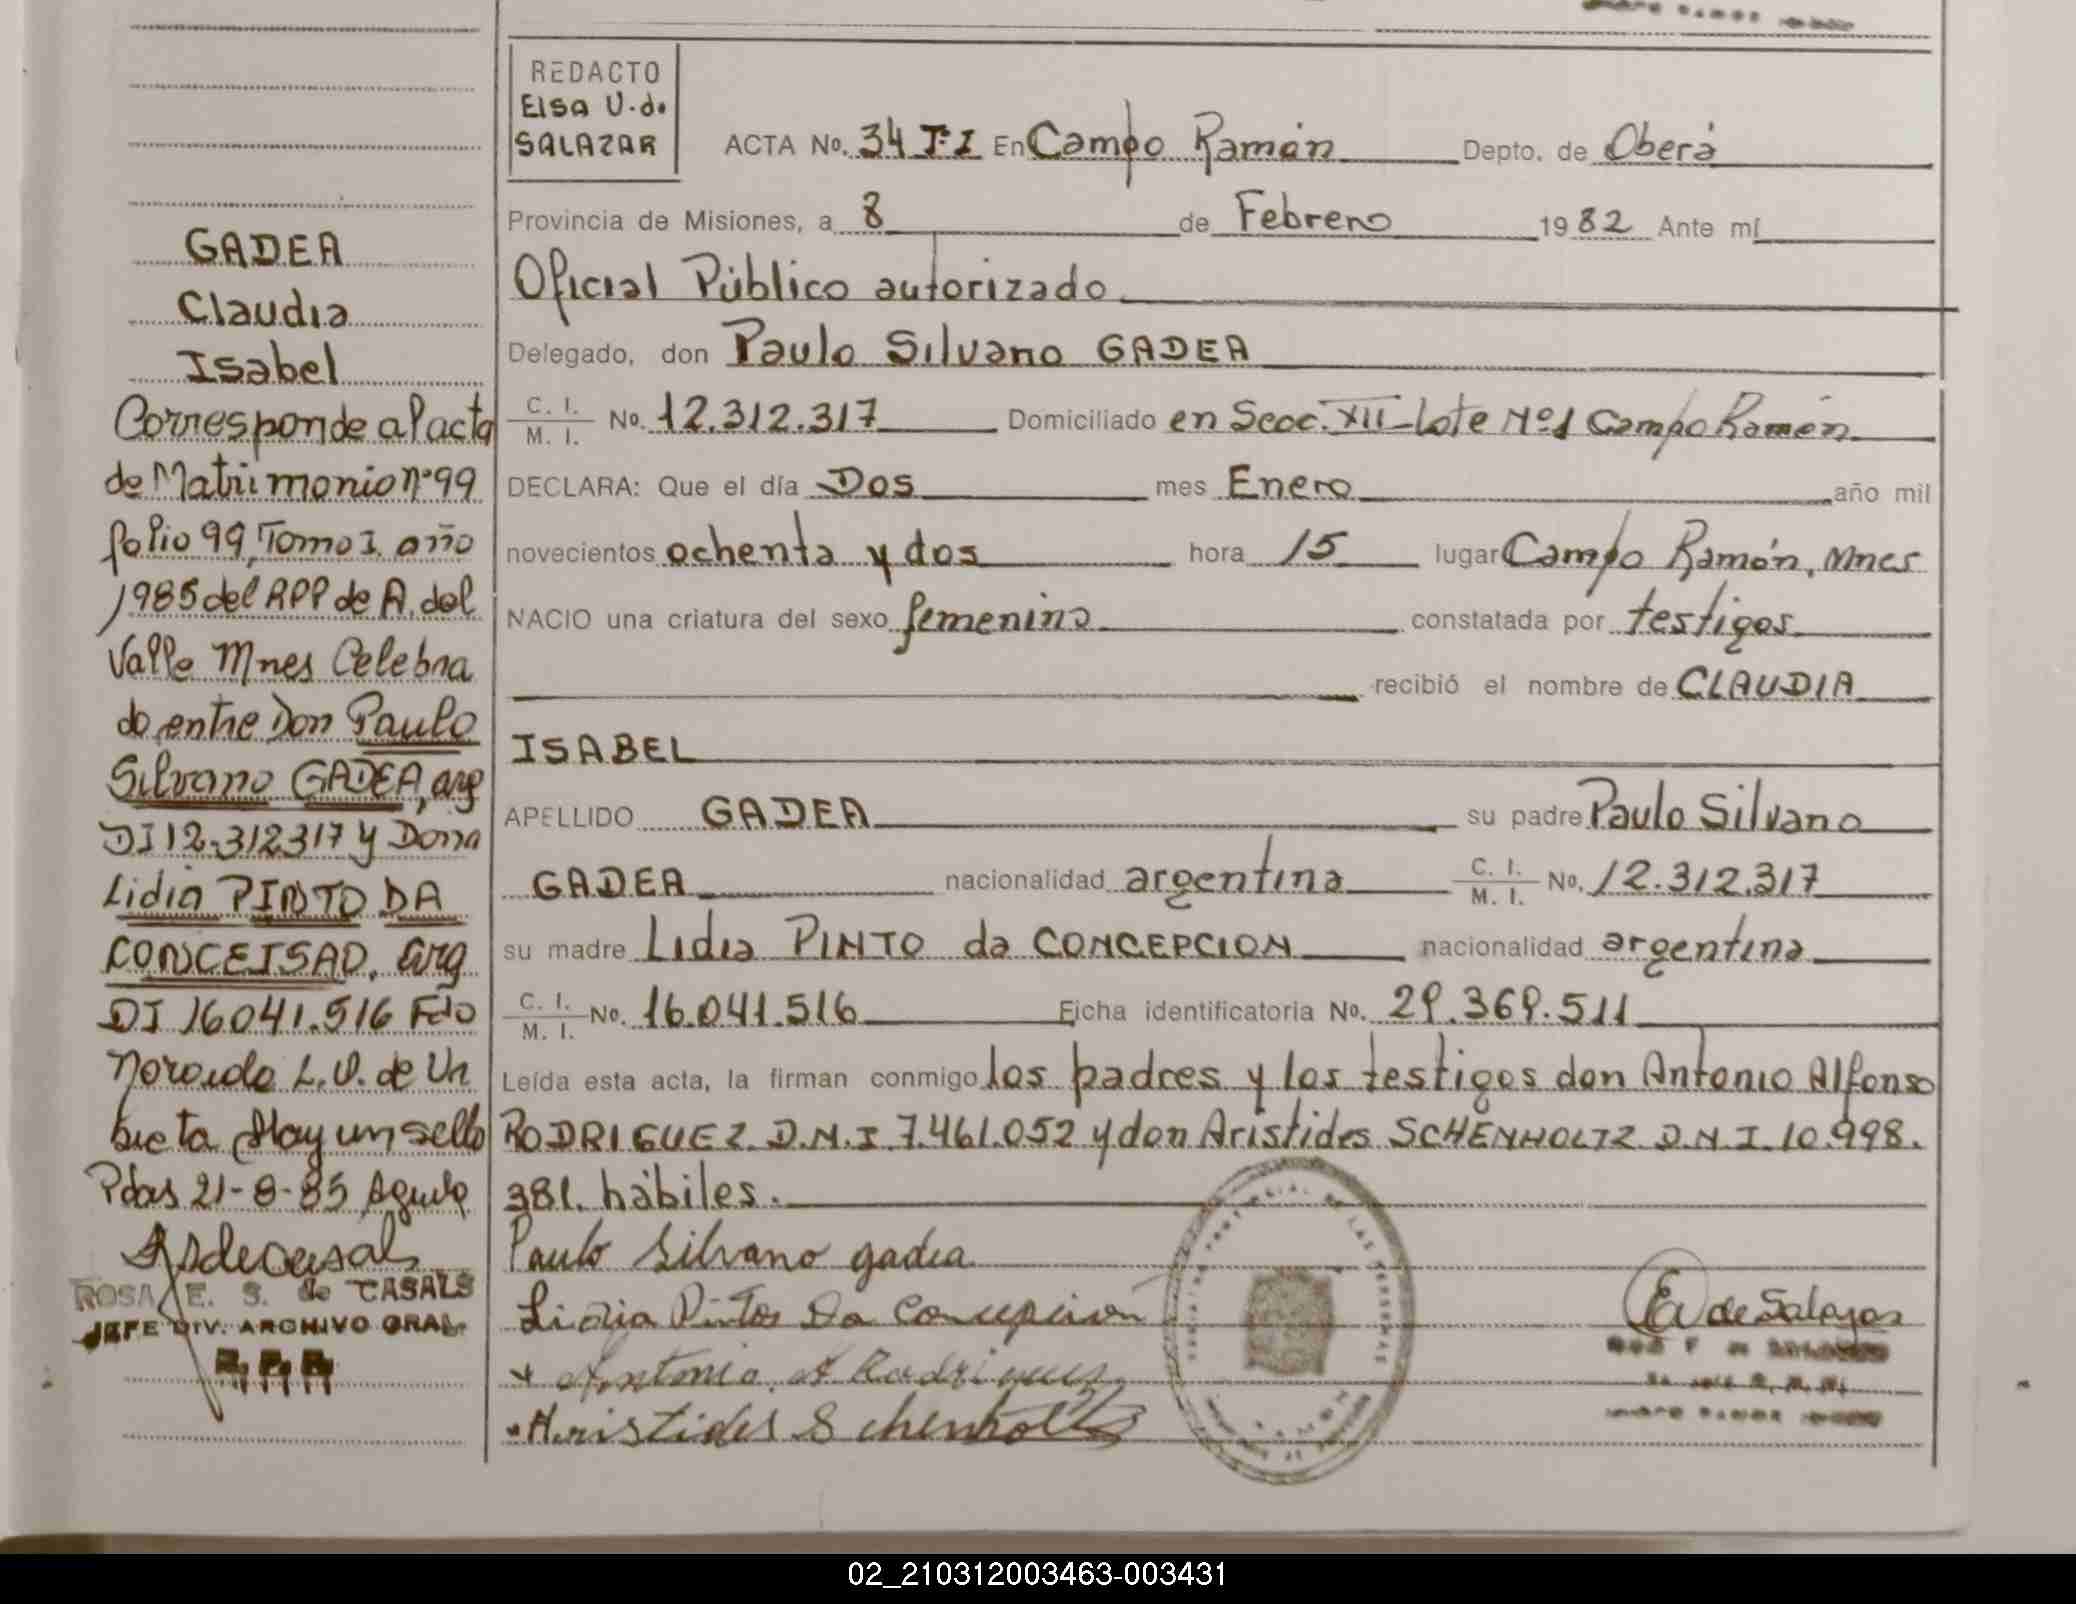 REDACTO
Elsa U. de
SALAZAR
ACTA No. 34 Tº I En Campo Ramón Depto. de Oberá
Provincia de Misiones, a 8 de Febrero 1982 Ante mí
Oficial Público autorizado
Delegado, don Paulo Silvano GADEA
C. I. / M. I. No. 12.312.317 Domiciliado en Secc. XII - Lote Nº 1 Campo Ramón
DECLARA: Que el día Dos mes Enero año mil
novecientos ochenta y dos hora 15 lugar Campo Ramón, Mnes
NACIO una criatura del sexo femenino constatada por testigos
recibió el nombre de CLAUDIA
ISABEL
APELLIDO GADEA su padre Paulo Silvano
GADEA nacionalidad argentina C. I. / M. I. No. 12.312.317
su madre Lidia PINTO da CONCEPCION nacionalidad argentina
C. I. / M. I. No. 16.041.516 Ficha identificatoria No. 29.369.511
Leída esta acta, la firman conmigo los padres y los testigos don Antonio Alfonso
RODRIGUEZ D.N.I 7.461.052 y don Aristides SCHENHOLTZ D.N.I. 10.998.
381. hábiles.
Paulo Silvano gadea
Lidia Pintos Da Concepcion
Antonio A Rodriguez
Aristides Schenholtz
E U de Salazar
GADEA
Claudia
Isabel
Corresponde al acta
de Matrimonio nº 99
folio 99, Tomo I año
1985 del RPP de A. del
Valle Mnes Celebra
do entre Don Paulo
Silvano GADEA, arg
DI 12.312317 y Doña
Lidia PINTO DA
CONCEISAO, arg
DI 16041.516 Fdo
Noroida L. V. de Ur
bieta Hay un sello
Pdas 21-8-85
ROSA E. S. de CASALS
JEFE DIV. ARCHIVO GRAL.
R.P.P.
02_210312003463-003431